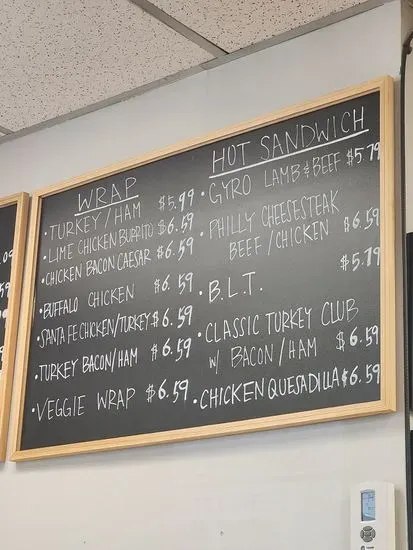 WRAP
• TURKEY / HAM $5.99
• LIME CHICKEN BURRITO $6.59
• CHICKEN BACON CAESAR $6.59
• BUFFALO CHICKEN $6.59
• SANTA FE CHICKEN/TURKEY $6.59
• TURKEY BACON/HAM $6.59
• VEGGIE WRAP $6.59
HOT SANDWICH
• GYRO LAMB & BEEF $5.79
• PHILLY CHEESESTEAK
BEEF / CHICKEN $6.59
• B.L.T. $5.79
• CLASSIC TURKEY CLUB
W/ BACON / HAM $6.59
• CHICKEN QUESADILLA $6.59